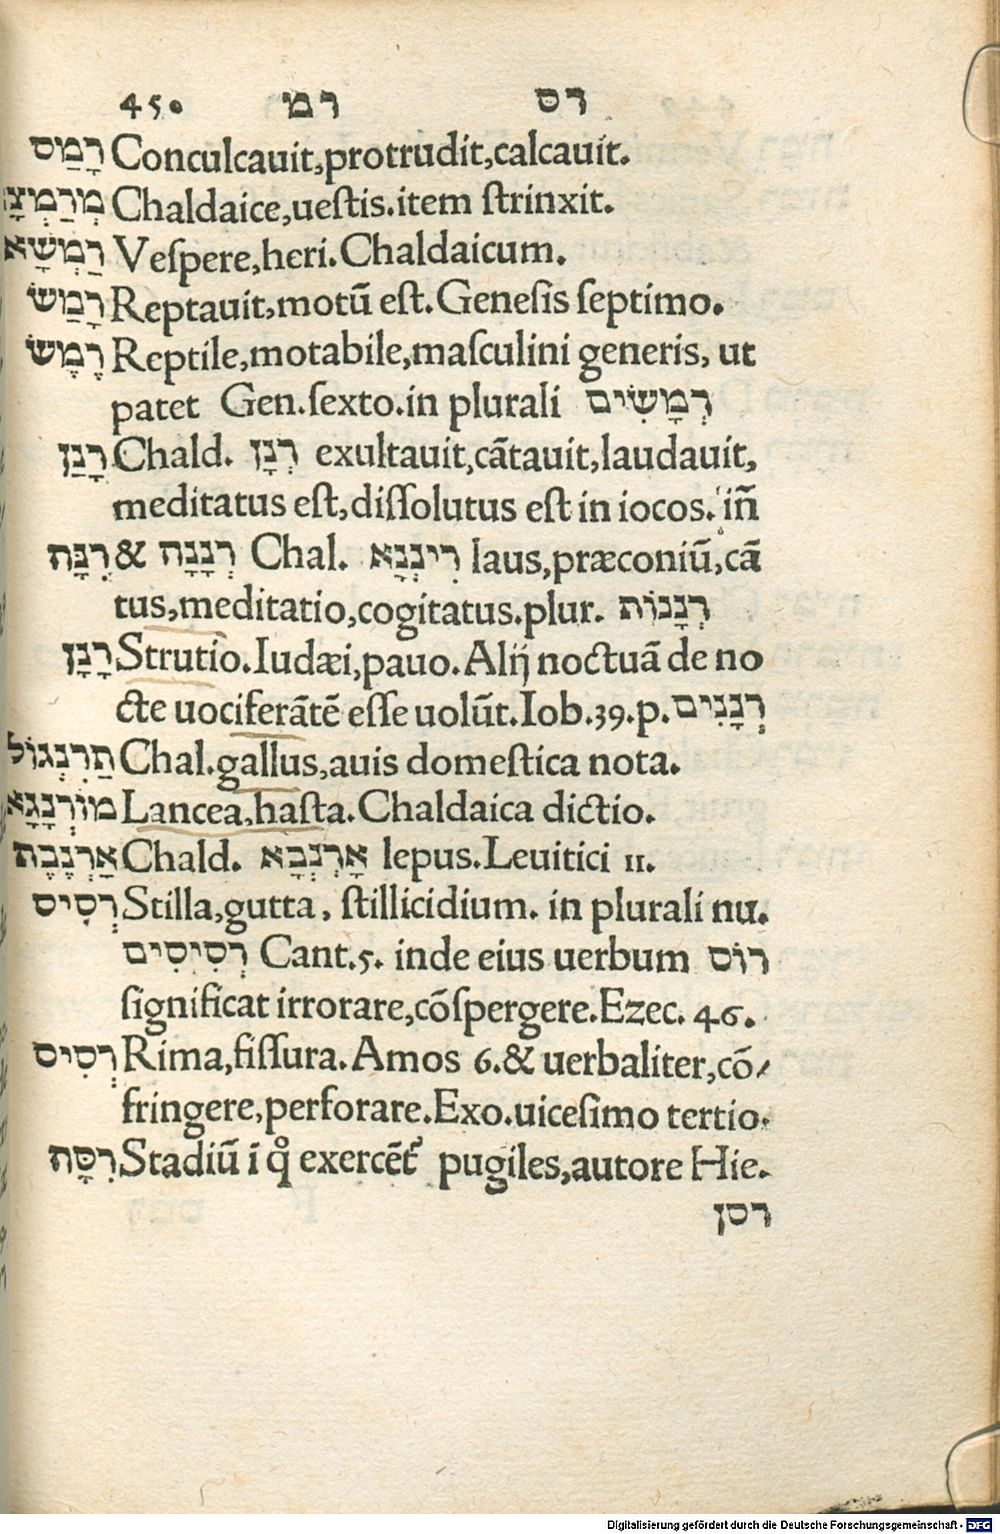 450 רמ רס
רָמַס Conculcauit,protrudit,calcauit.
מְרַמְצָ Chaldaice,ueſtis.item ſtrinxit.
רַמְשָׁא Veſpere,heri.Chaldaicum.
רָמַשׂ Reptauit,motū eſt.Geneſis ſeptimo.
רֶמֶשׂ Reptile,motabile,maſculini generis, ut
patet Gen.ſexto.in plurali רְמָשִׂים
רָנַן Chald. רְנָן exultauit,cātauit,laudauit,
meditatus eſt,diſſolutus eſt in iocos.in̄
רִנָּה & רְנָנָה Chal. רִינְנָא laus,præconiū,cā
tus,meditatio,cogitatus.plur. רְנָנוֹת
רָנָן Strutio.Iudæi,pauo.Alij noctuā de no
cte uociferātē eſſe uolūt.Iob.39.p.רְנָנִים
תַרְנְגוֹל Chal.gallus,auis domeſtica nota.
מוֹרְנָגָא Lancea,haſta.Chaldaica dictio.
אַרְנֶבֶת Chald. אָרְנְבָא lepus.Leuitici 11.
רְסִיס Stilla,gutta, ſtillicidium. in plurali nu.
רְסִיסִים Cant.5. inde eius uerbum רוֹס
ſignificat irrorare,cōſpergere.Ezec. 46.
רְסִיס Rima,fiſſura.Amos 6.& uerbaliter,cō/
fringere,perforare.Exo.uiceſimo tertio.
רִסָּה Stadiū ī q̊ exercēt᷑ pugiles,autore Hie.
רסן
Digitalisierung gefördert durch die Deutsche Forschungsgemeinschaft - DFG